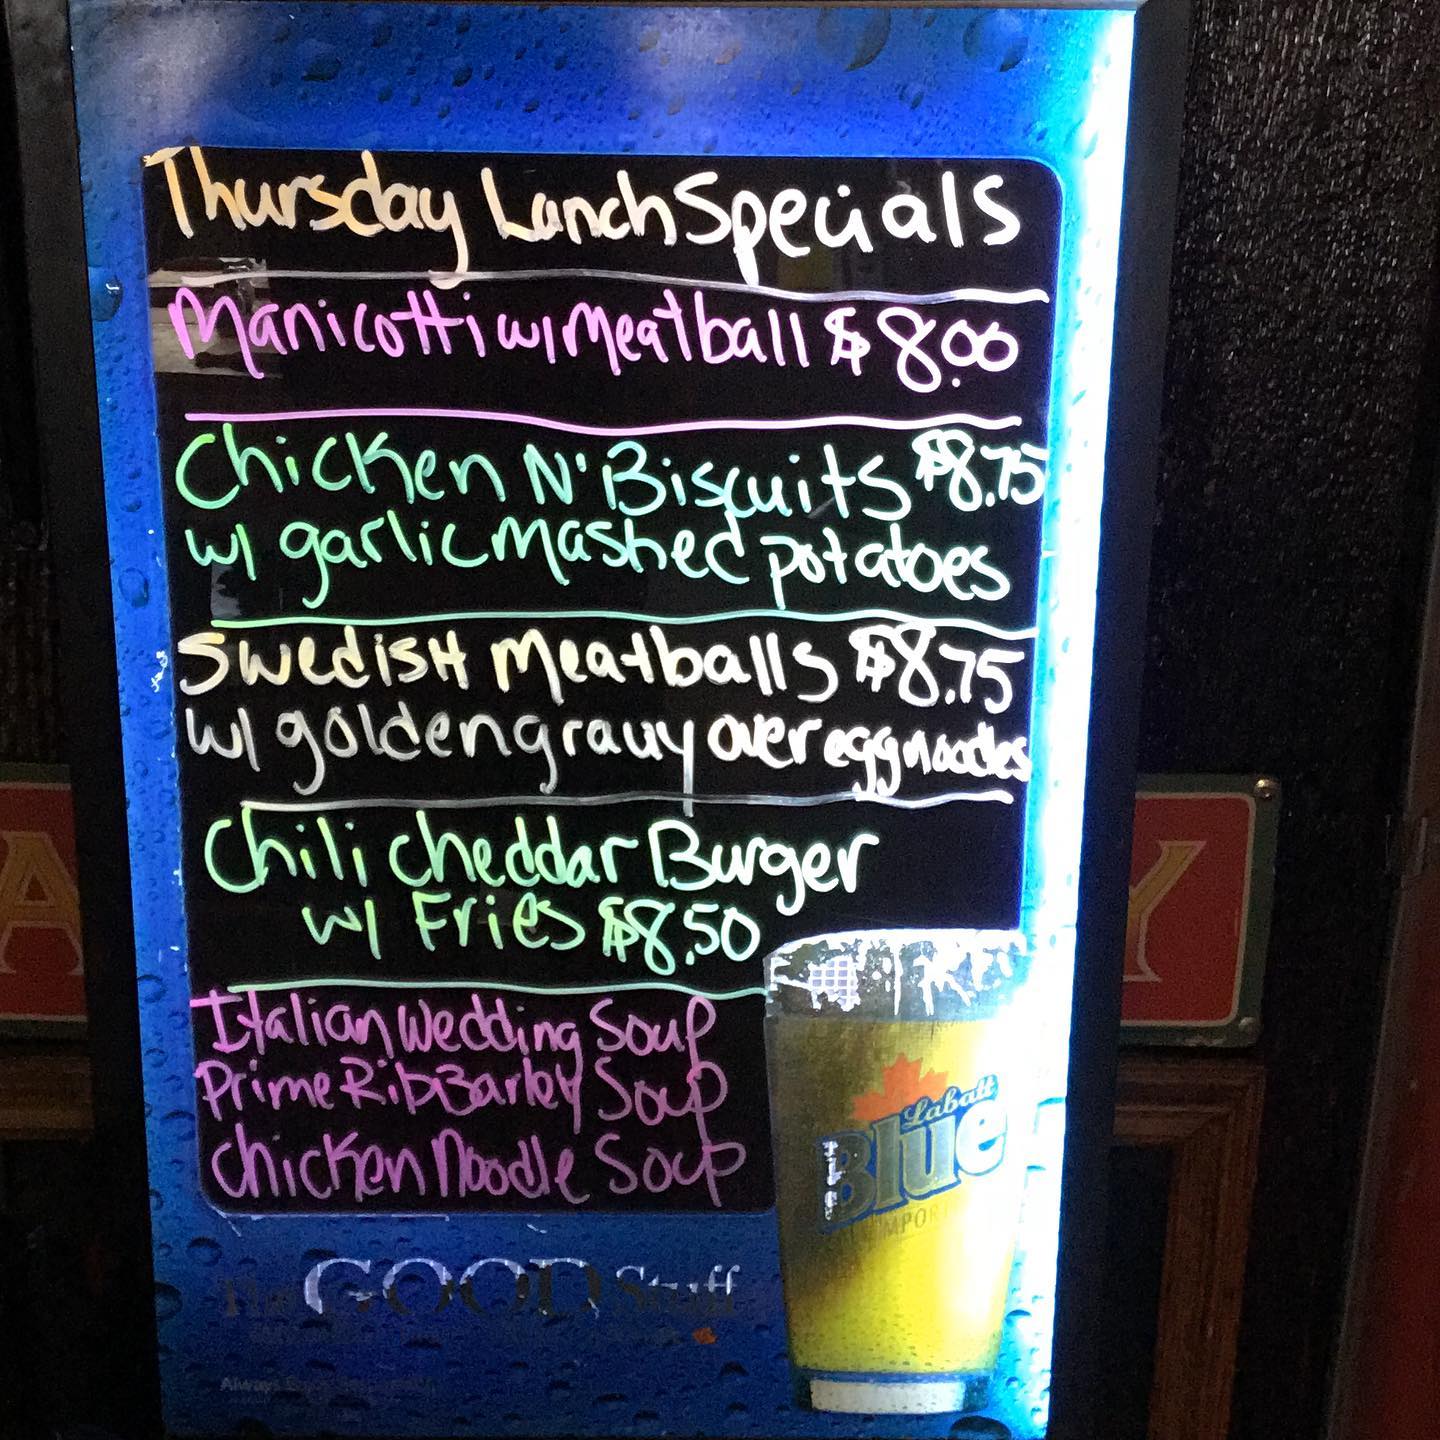 Thursday Lunch Specials
Manicotti w/ Meatball $8.00
Chicken N' Biscuits $8.75
w/ garlic mashed potatoes
Swedish Meatballs $8.75
w/ golden gravy over egg noodles
Chili cheddar Burger
w/ Fries $8.50
Italian Wedding Soup
Prime Rib Barley Soup
Chicken Noodle Soup
A
Y
Labatt
Blue
The GOOD Stuff
Always